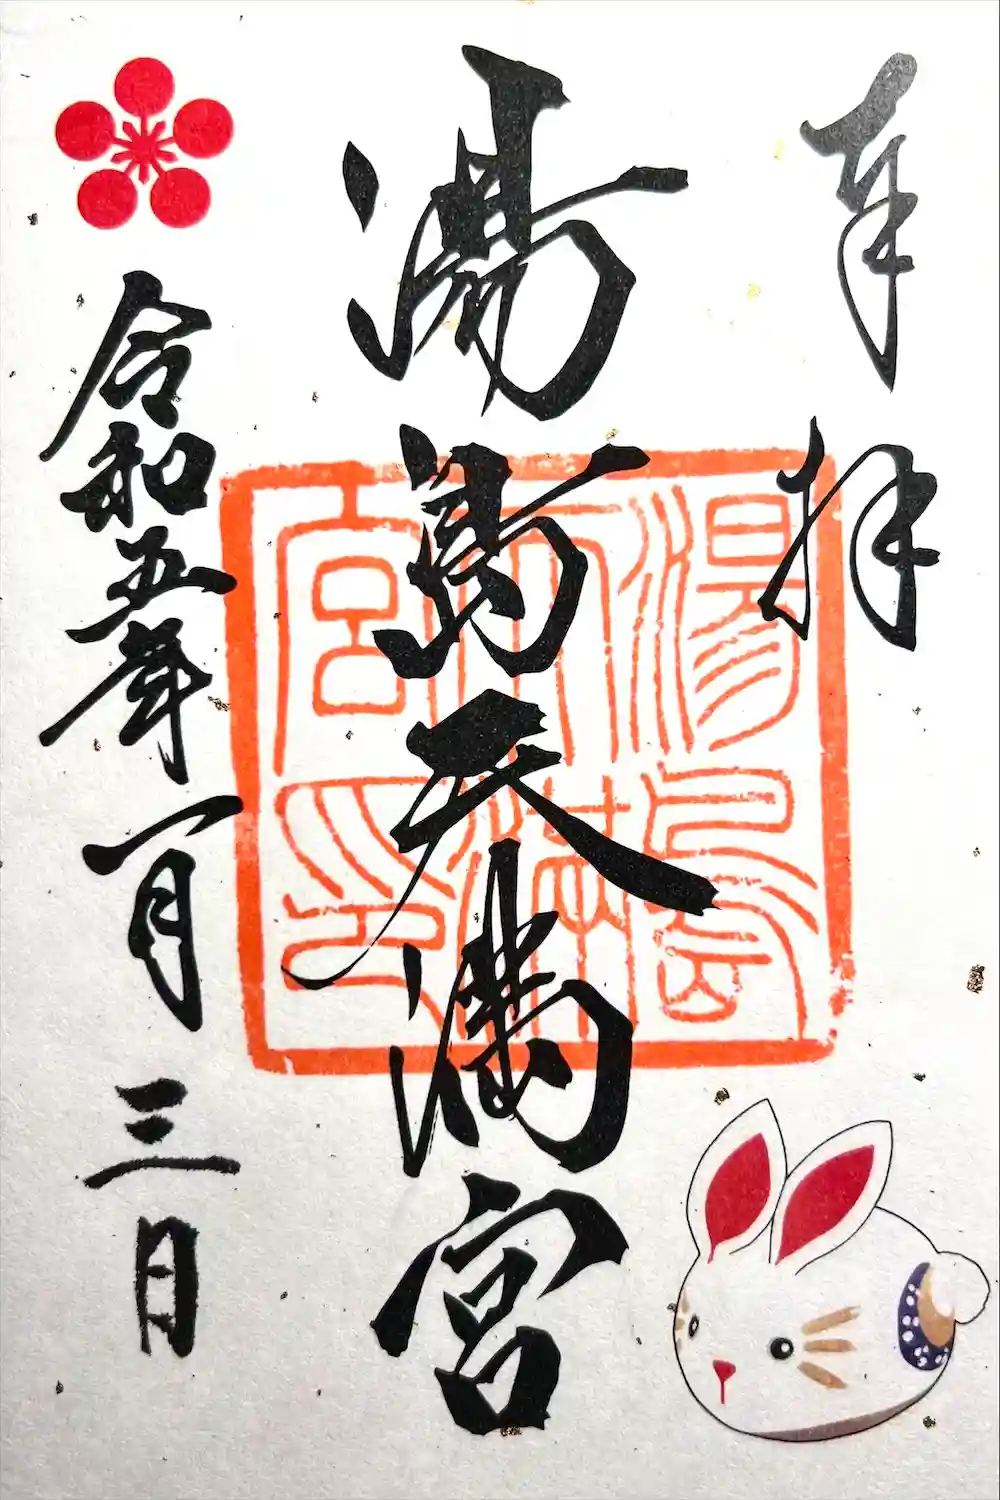 奉拝
湯島天満宮
湯島
天満
宮印
令和五年一月三日